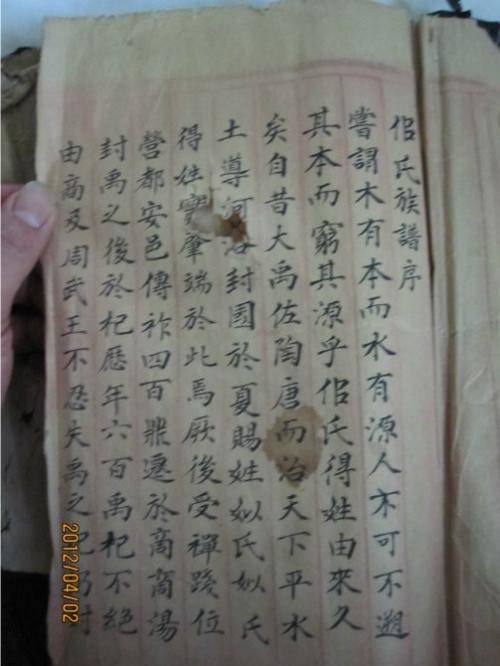 佀氏族譜序
嘗謂木有本而水有源人亦可不遡
其本而窮其源乎佀氏得姓由來久
矣自昔大禹佐陶唐而治天下平水
土導河封國於夏賜姓似氏似氏
得姓實肇端於此焉厥後受禪踐位
營都安邑傳祚四百鼎遷於商商湯
封禹之後於杞歷年六百禹杞不絕
由商及周武王不忍失禹之祀仍封
2012/04/02